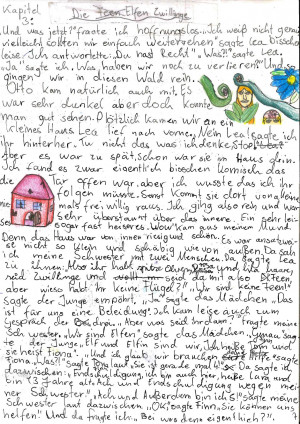 Kapitel
3:
Die Feen Elfen Zwillinge
Und was jetzt" fragte ich hoffnungslos. „Ich weiß nicht genau
vielleicht sollten wir einfach weitergehen" sagte Lea bisschen
leise. Ich antwortete: „Du has Recht" „Was?" sagte Lea.
„Ja" sagte ich. „Was haben wir noch zu verlieren?" Und so
gingen wir in diesen Wald rein.
Otto kam natürlich auch mit. Es
war sehr dunkel aber doch konnte
man gut sehen. Plötzlich kamen wir an ein
kleines Haus. Lea lief nach vorne. „Nein Lea! sagte ich
ihr hinterher. Tu nicht das was ich denke. Stop, Lea!
Aber es war zu spät, schon war sie im Haus drin.
Ich fand es zwar eigentlich bisschen komisch das
die Tür offen war aber ich wusste das ich ihr
folgen müsste. Sonst kommt sie dort von alleine
niemals freiwillig raus. Ich ging also rein und war
sehr überrascht über das innere. Ein sehr
sogar fast Wow" kam aus meinem Mund.
Denn das Haus war von innen riesig und schön. Es war
ist nicht so klein und schäbig wie von außen. Da sah
ich meine Schwester mit zwei Menschen. Da sagte Lea
zu ihnen:
seid Zwillinge und seid mit also Dritten,
aber wieso habt ihr keine Flügel?" „Wir sind keine Feen!"
sagte der Junge empört. „Ja" sagte das Mädchen. „Das
ist für uns eine Beleidigung". Ich kam leise auch zum
Gespräch der Beiden. „Aber was seid ihr dann?" fragte meine
Schwester. „Wir sind Elfen" sagte das Mädchen. „Genau" sagte
der Junge. „Elf und Elfin sind wir. Ich heiße Finn und
sie heist Fiona". „Und ich glaub wir brauchen Hilfe" sagte
Fiona. „Lass!" sagte Finn laut „Sie ist gerade mal 4!" Da sagte ich
dazwischen: „Entschuldigung, ich bin auch hier, heiße
bin 13 Jahre alt. Ach und Entschuldigung wegen mei-
ner Schwester". „Ach und Außerdem bin ich 5!" sagte meine
Schwester laut dazwischen. „OK" sagte Finn „Sie können uns
helfen" Und da fragte ich: „Bei was denn eigentlich?".